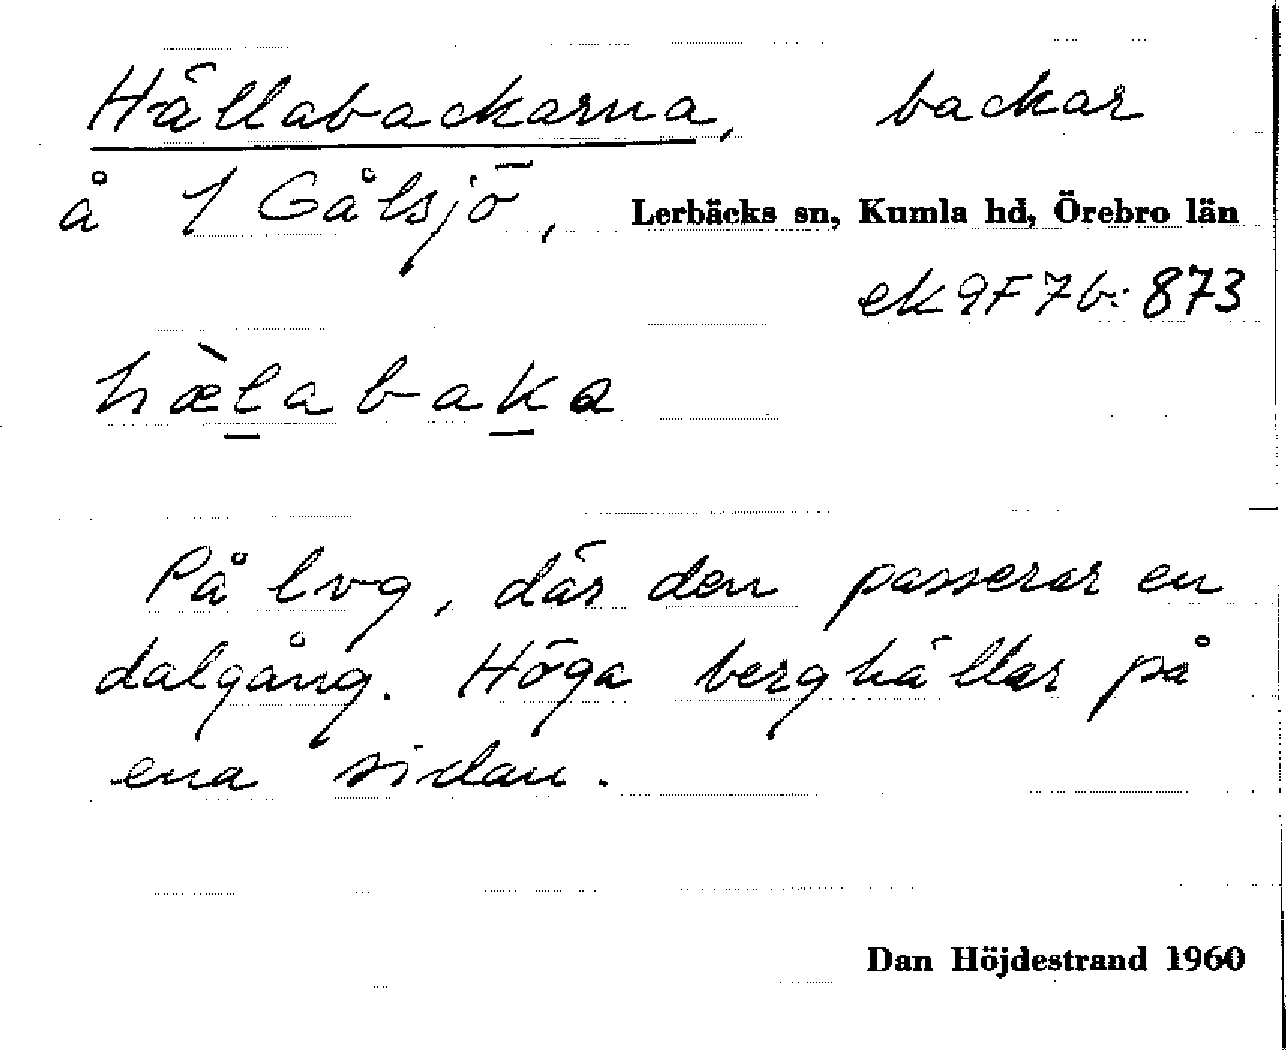 Hällabackarna, backar
å 1 Gålsjö, Lerbäcks sn, Kumla hd, Örebro län
ek 9F7b: 873
hæ̀l̲abak̲a
På lvg, där den passerar en
dalgång. Höga berghällar på
ena sidan.
Dan Höjdestrand 1960